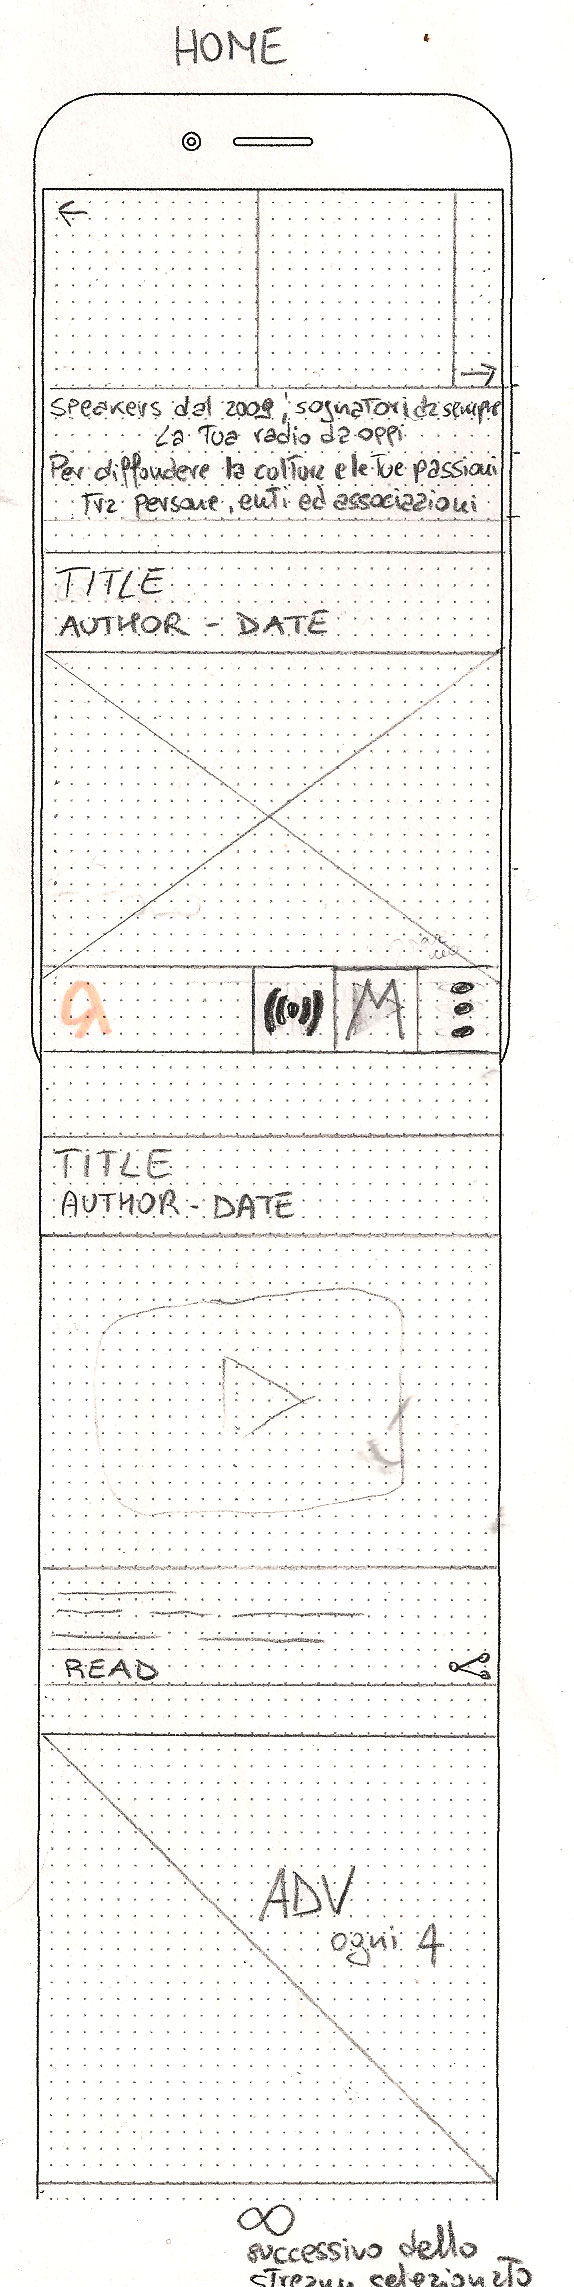 HOME
Speakers dal 2009, sognatori da sempre
La Tua radio da oggi
Per diffondere la culture e le Tue passioni
Tra persone, enti ed associazioni
TITLE
AUTHOR - DATE
M
TITLE
AUTHOR - DATE
READ
ADV
ogni 4
∞
successivo dello
stream selezionato